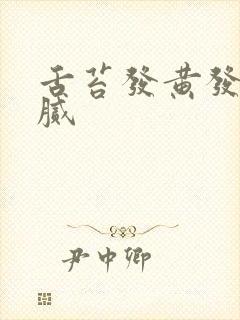 舌苔發黃發
膩
尹中卿